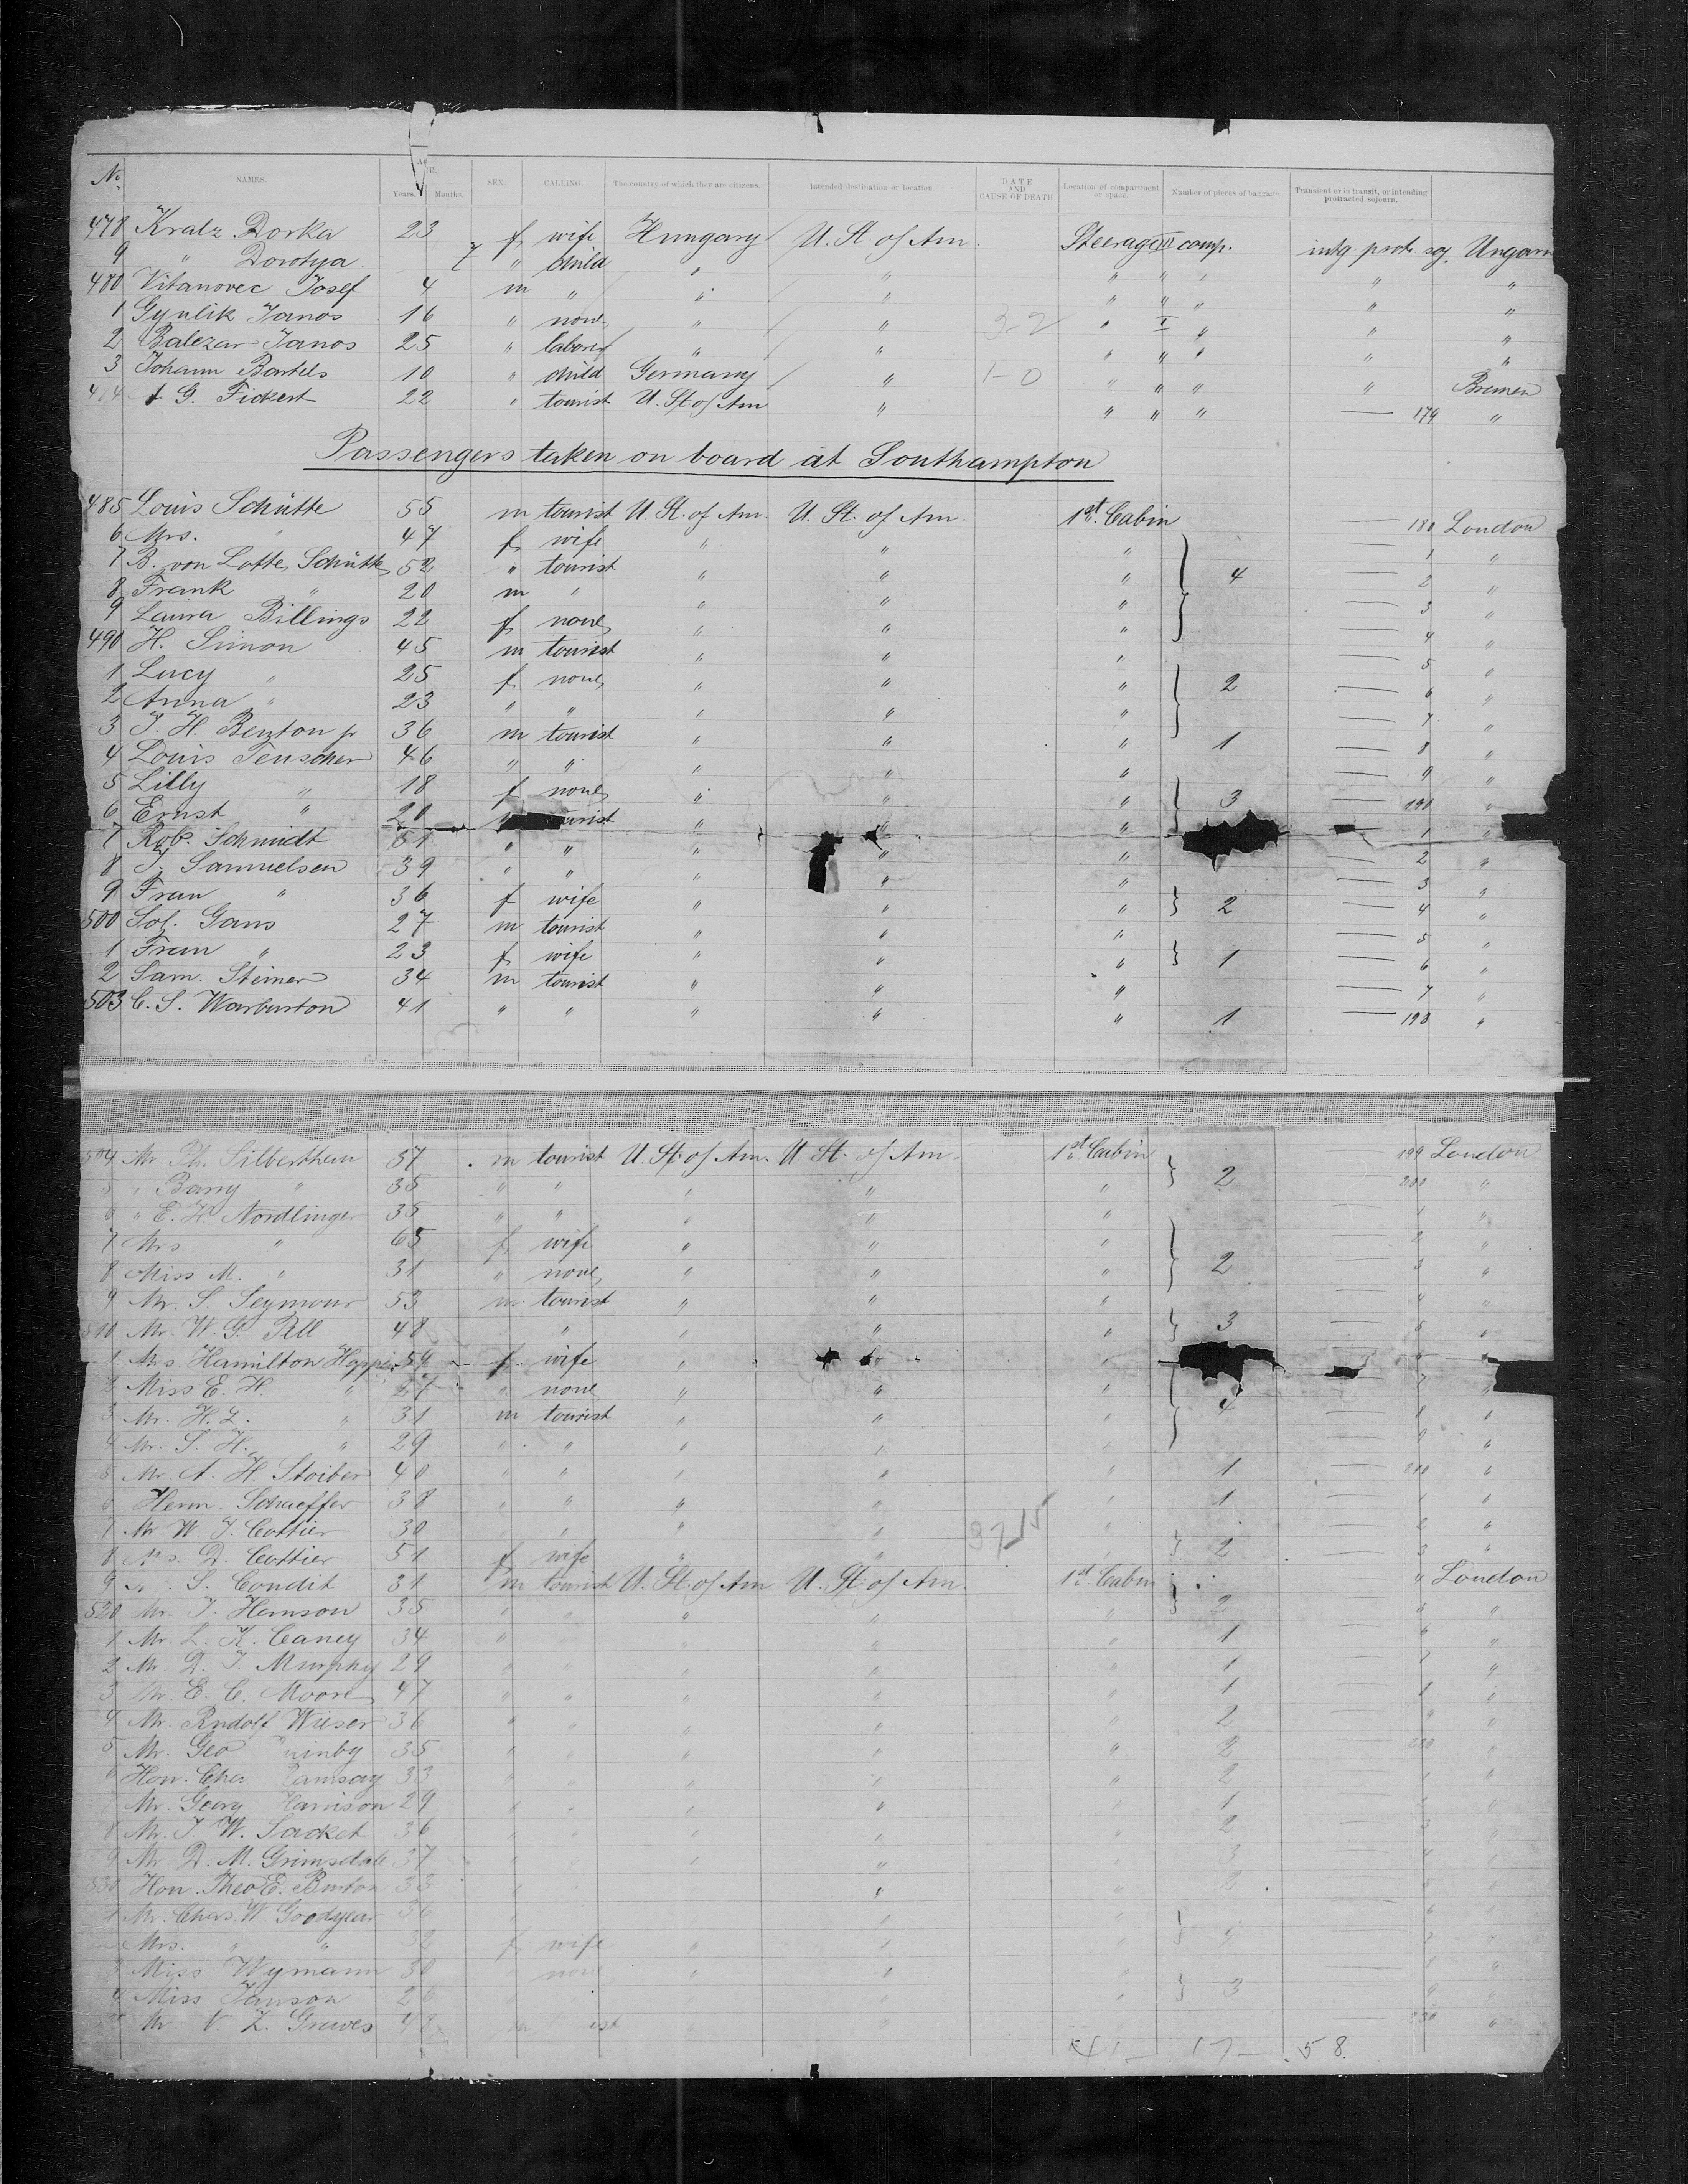 No. NAMES. Age. Years. Months. SEX. CALLING. The country of which they are citizens. Intended destination or location. DATE AND CAUSE OF DEATH Location of compartment or space. Number of pieces of baggage. Transient or in transit, or intending protracted sojourn.
478 Kratz Dorka 23 f wife Hungary U. St. of Am. Steerage II comp. intg prot. soj. Ungarn
9 " Dorotya 7 " child " " " " " " "
480 Vitanovec Josef 4 m " " " " " " " "
1 Gyulik Janos 16 " none " " 3-2 " I " " "
2 Balezar Janos 25 " laborer " " " " " " "
3 Johann Bartels 10 " child Germany " 1-0 " " " " Bremen
484 A G. Fickert 22 " tourist U. St. of Am " " " " — 179 "
Passengers taken on board at Southampton
485 Louis Schütte 55 m tourist U. St. of Am. U. St. of Am. 1st. Cabin — 180 London
6 Mrs. " 47 f wife " " " — 1 "
7 B. von Lotte Schütte 52 " tourist " " " 4 — 2 "
8 Frank " 20 m " " " " — 3 "
9 Laura Billings 22 f none " " " — 4 "
490 H. Simon 45 m tourist " " " — 5 "
1 Lucy " 25 f none " " " 2 — 6 "
2 Anna " 23 " " " " " — 7 "
3 J. H. Benton jr 36 m tourist " " " 1 — 8 "
4 Louis Teuscher 46 " " " " " — 9 "
5 Lilly " 18 f none " " " 3 — 190 "
6 Ernst " 20 tourist " " " — 1 "
7 Rob. Schmidt 51 " " " " " — 2 "
8 J. Samuelsen 39 " " " " " — 3 "
9 Frau " 36 f wife " " " 2 — 4 "
500 Sol. Gans 27 m tourist " " " — 5 "
1 Frau " 23 f wife " " " 1 — 6 "
2 Sam. Steiner 34 m tourist " " " — 7 "
503 C. S. Warburton 41 " " " " " 1 — 198 "
504 Mr Th. Silberthem 37 m tourist U. St. of Am. U. St. of Am. 1st. Cabin — 199 London
5 " Barry " 35 " " " " " 2 — 200 "
6 " E. H. Nordlinger 35 " " " " " — 1 "
7 Mrs " 65 f wife " " " — 2 "
8 Miss M. " 31 " none " " " 2 — 3 "
9 Mr. S. Seymour 53 m. tourist " " " — 4 "
510 Mr. W. G. Pell 48 " " " " 3 — 5 "
1 Mrs. Hamilton Hoppin 59 f. wife " " — 6 "
2 Miss E. H. " 27 " none " " " — 7 "
3 Mr. H. L. " 31 m tourist " " " 4 — 8 "
4 Mr. S. H. " 29 " " " " " — 9 "
5 Mr A. H. Stoiber 40 " " " " " 1 — 210 "
6 Herm. Schaeffer 38 " " " " " 1 — 1 "
7 Mr W. J. Cottier 30 " " " " — 2 "
8 Mrs. D. Cottier 51 f wife " " " 2 — 3 "
9 S. Condit 31 m tourist U. St. of Am U. St. of Am. 1st. Cabin 4 London
520 Mr. J. Hemson 35 " " " " " 2 — 5 "
1 Mr. L. K. Caney 34 " " " " 1 — 6 "
2 Mr. D. J. Murphy 29 " " " " " 1 — 7 "
3 Mr. E. C. Moore 47 " " " " " 1 — 8 "
4 Mr. Rudolf Wieser 36 " " " " " 2 — 9 "
5 Mr. Geo 35 " " " " " 2 — 220 "
Hon. Cha Ramsay 33 " " " " " 2 — 1 "
Mr. Georg Harrison 29 " " " " " 1 — 2 "
8 Mr. J. W. Sacket 36 " " " " " 2 — 3 "
9 Mr. D. M. Grimsdale 37 " " " " 3 — 4 "
530 Hon. Theo E. Burton 33 " " " 2 — 5 "
1 Mr. Chas. W. Goodyear 36 " " " — 6 "
Mrs. " " 32 f wife " " " — 7 "
3 Miss Wymann 30 none " " — 8 "
4 Miss Janson 26 " " 3 — 9 "
Mr V. Z. Graves 48 — 230 "
41 — 17 — 58.